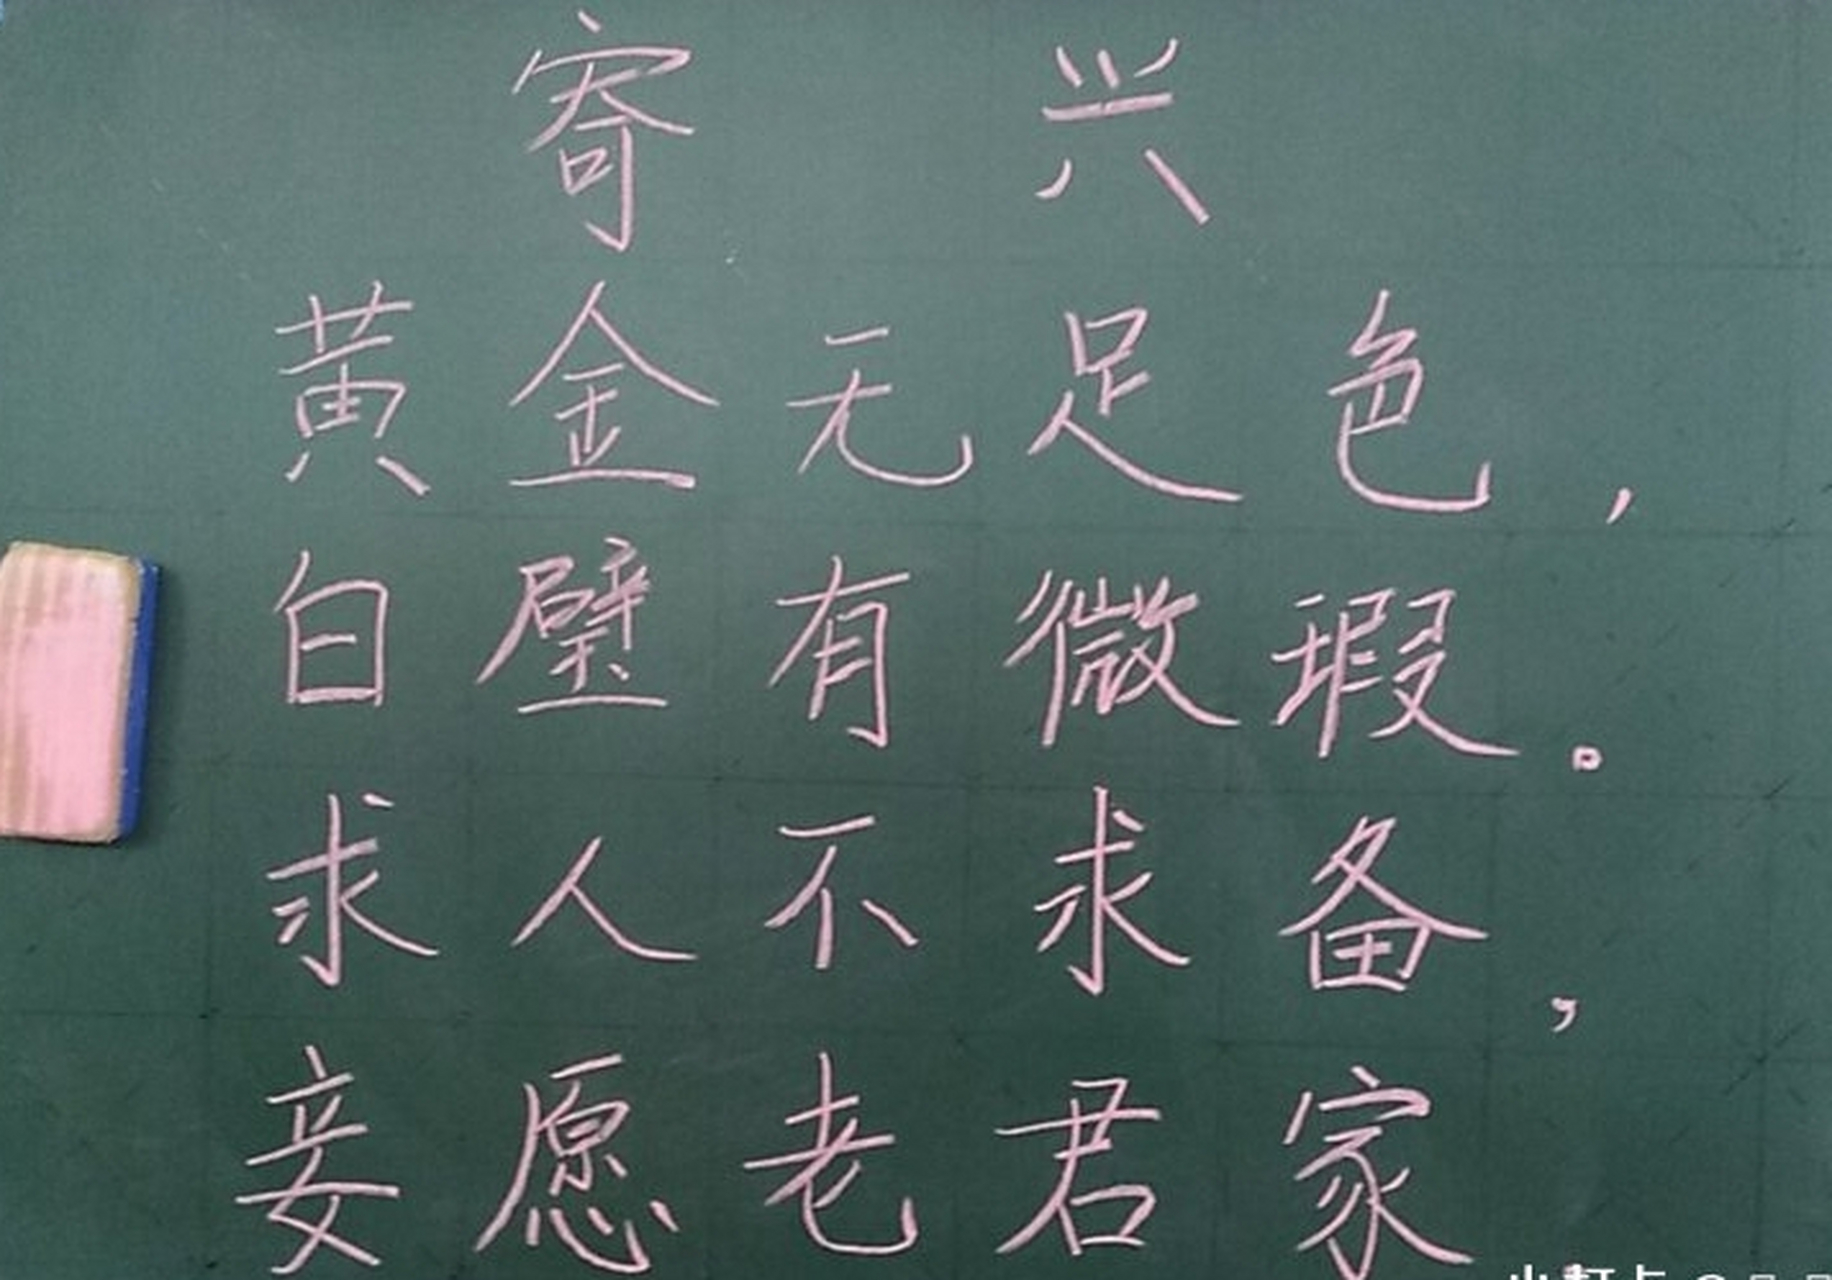 寄兴
黄金无足色，
白璧有微瑕。
求人不求备，
妾愿老君家